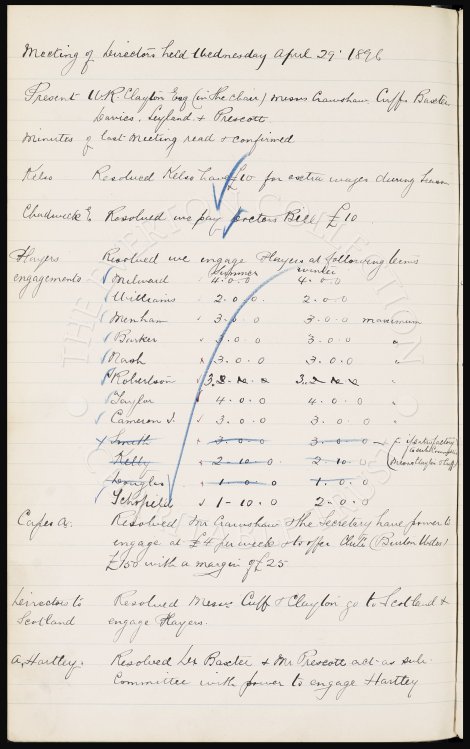 Meeting of Directors held Wednesday April 29th 1896
Present W.R. Clayton Esq (in the chair) Messrs Crawshaw Cuff Baxter
Davies, Leyland & Prescott
Minutes of last meeting read & confirmed
Kelso Resolved Kelso have £10 for extra wages during season
Chadwick E. Resolved we pay doctors Bill £10.
Players Resolved we engage Players at following terms
engagements Summer winter
Milward 4.0.0 4.0.0
Williams 2.0.0. 2.0.0
Menham 3.0.0 3.0.0 maximum
Barker 3.0.0 3.0.0 "
Nash 3.0.0 3.0.0 "
Robertson "
Taylor 4.0.0 4.0.0 "
Cameron J. 3.0.0 3.0.0 "
Smith 3.0.0 3.0.0 if satisfactory
Kelly 2.10.0 2.10.0 (Messrs Clayton & Cuff)
Douglas 1.0.0 1.0.0
Schofield 1-10.0 2.0.0
Capes A. Resolved Mr Crawshaw & the Secretary have power to
engage at £4 per week & to offer Club (Burton Utd)
£150 with a margin of £25
Directors to Resolved Messrs Cuff & Clayton go to Scotland &
Scotland engage Players.
A. Hartley. Resolved Dr Baxter & Mr Prescott act as sub-
Committee with power to engage Hartley